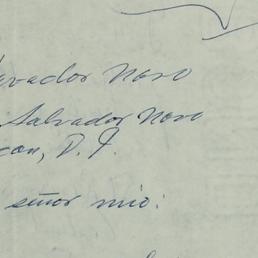 Salvador Novo
Salvador Novo
D. F.
señor mío: